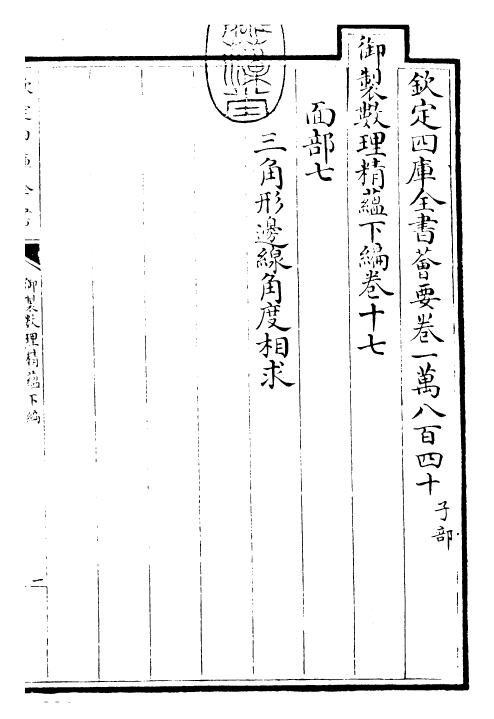 欽定四庫全書薈要卷一萬八百四十 子部
御製數理精蘊下編卷十七
面部七
三角形邊線角度相求
御製數理精蘊下編
一